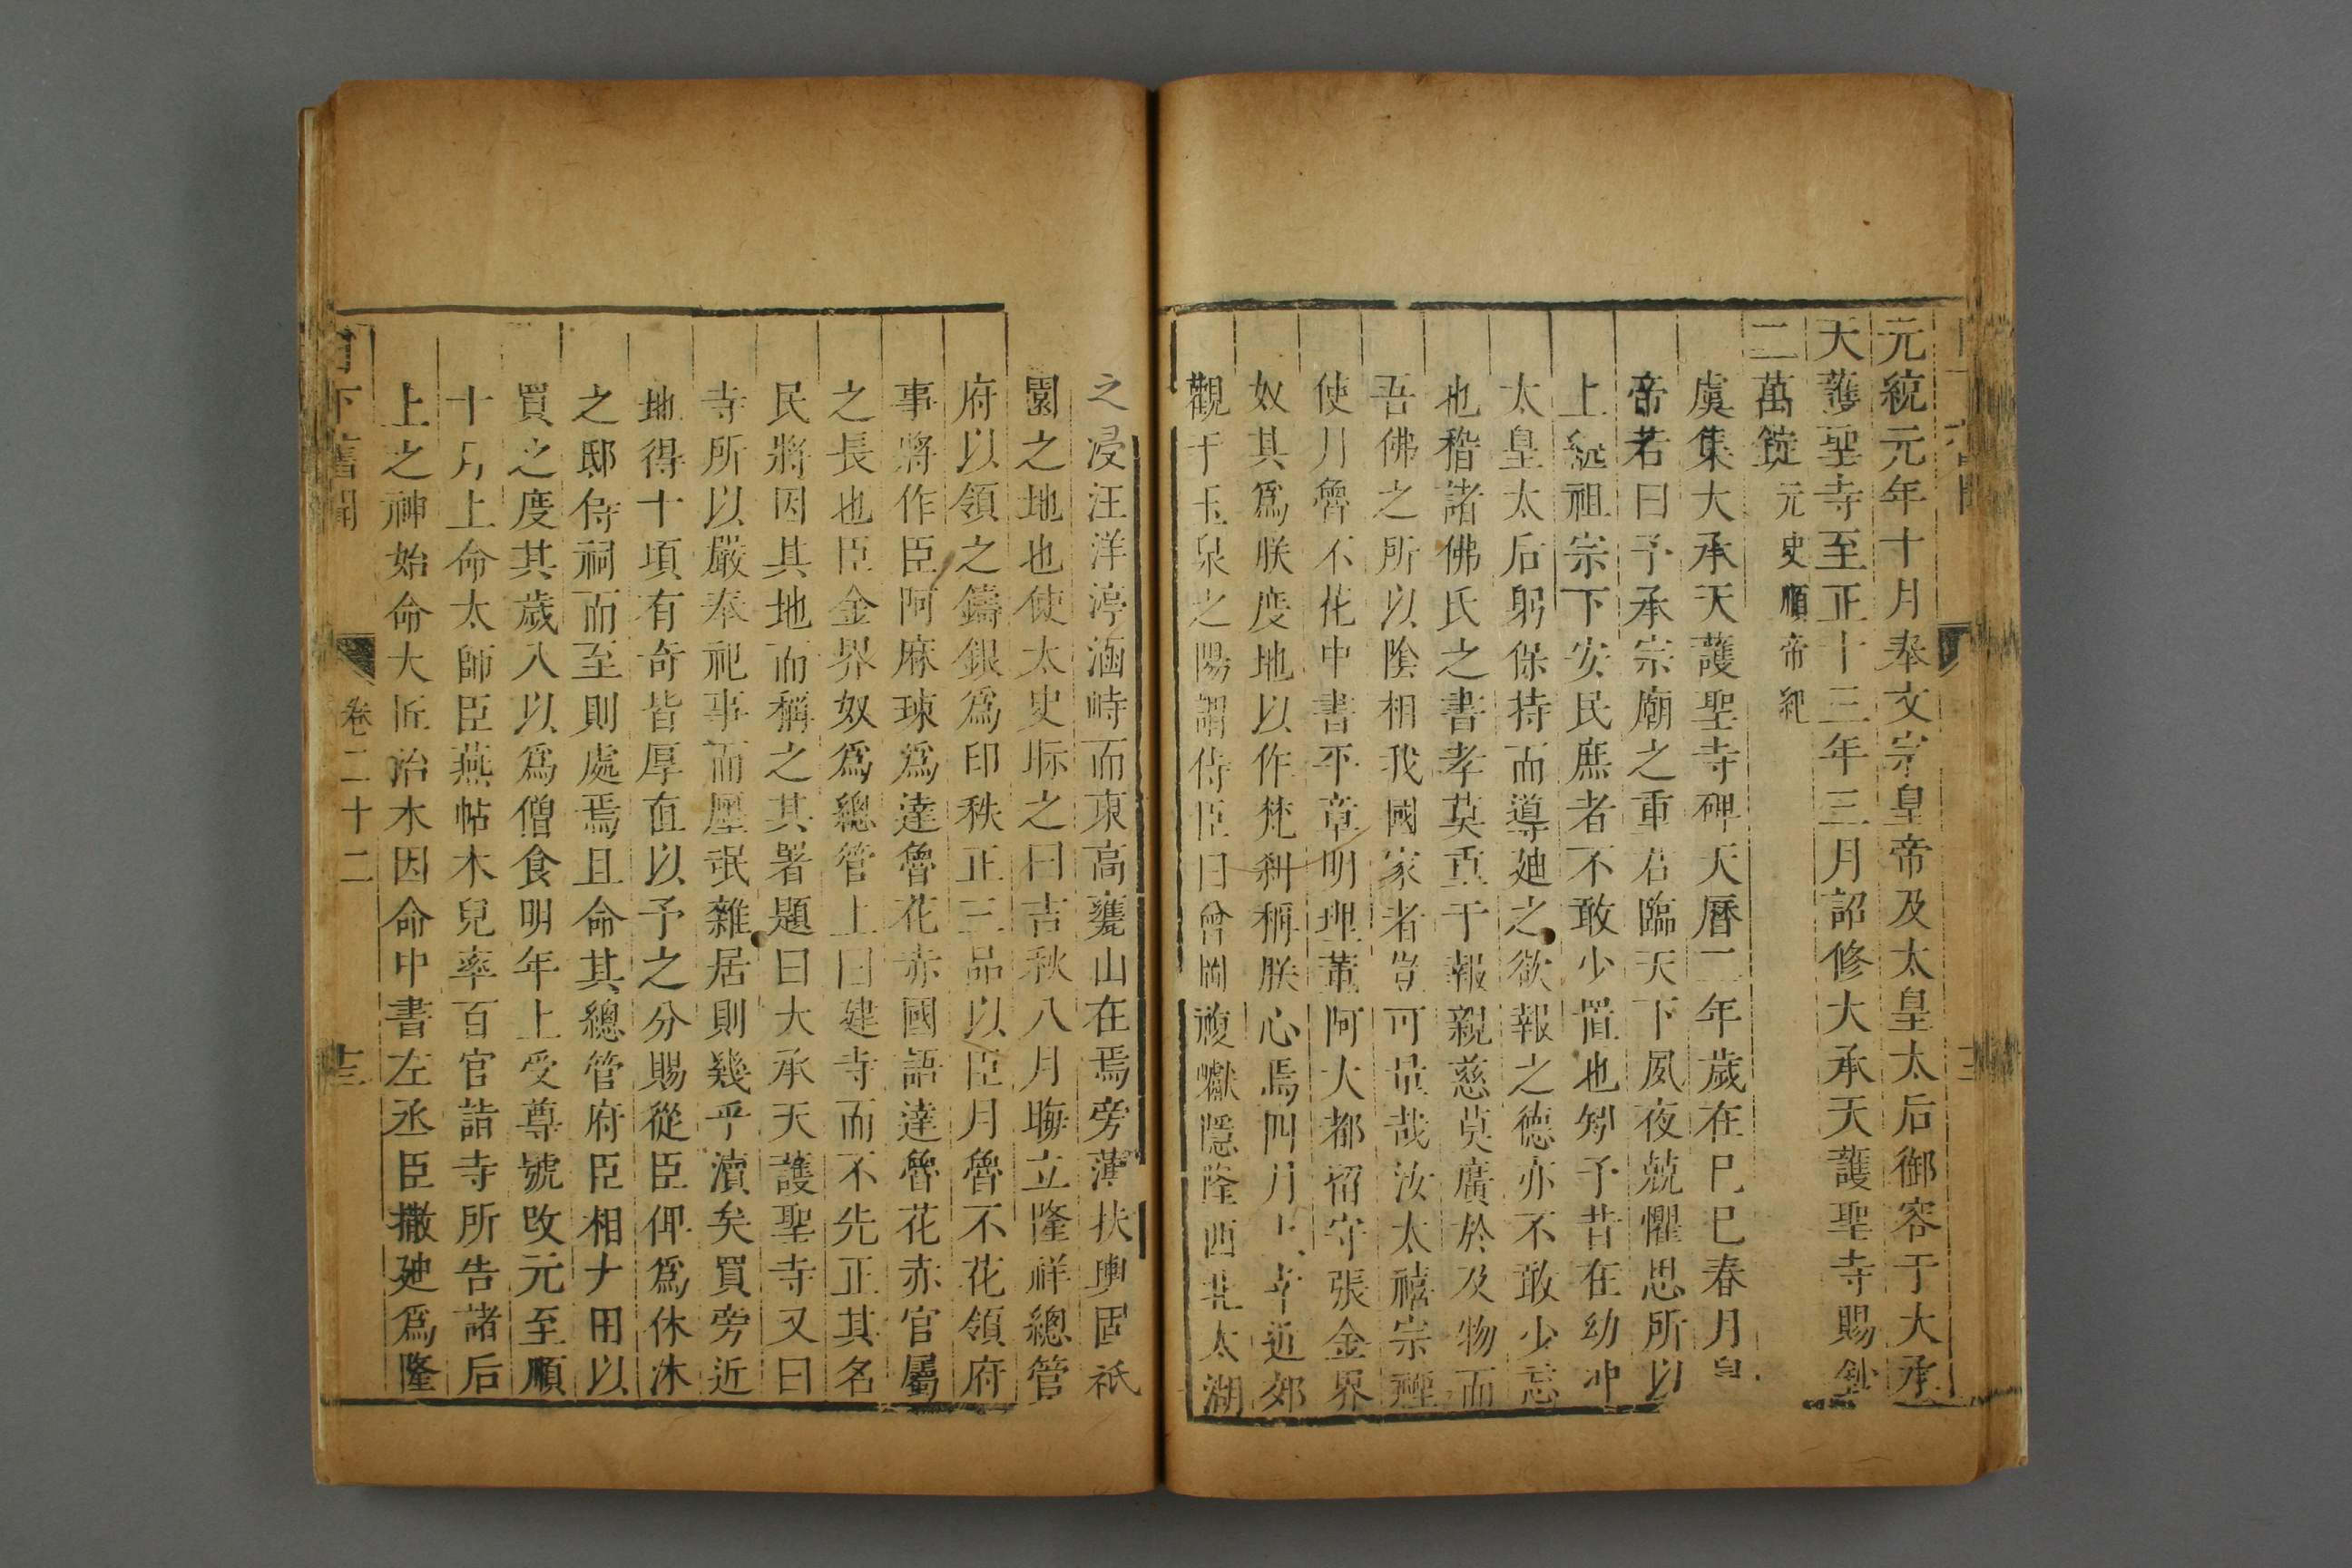 元統元年十月奉文宗皇帝及太皇太后御容于大承
天護聖寺至正十三年三月詔修大承天護聖寺賜鈔
二萬錠元史順帝紀
虞集大承天護聖寺碑天曆二年歲在巳巳春月皇
帝若曰予承宗廟之重君臨天下夙夜兢懼思所以
上紹祖宗下安民庶者不敢少置也矧予昔在幼冲
太皇太后躬保持而導廸之欲報之德亦不敢少忘
也稽諸佛氏之書孝莫重于報親慈莫廣於及物而
吾佛之所以陰相我國家者豈可量哉汝太禧宗禋
使月魯不花中書平章明理董阿大都留守張金界
奴其爲朕度地以作梵刹稱朕心焉四月上幸近郊
觀于玉泉之陽謂侍臣曰曾岡複巘隱隆西北太湖
之浸汪洋渟涵峙而東高甕山在焉旁薄扶輿固祇
園之地也使太史眎之曰吉秋八月晦立隆祥總管
府以領之鑄銀爲印秩正三品以臣月魯不花領府
事將作臣阿麻琜爲達魯花赤國語達魯花赤官屬
之長也臣金界奴爲總管上曰建寺而不先正其名
民將因其地而稱之其署題曰大承天護聖寺又曰
寺所以嚴奉祀事而㕓氓雜居則幾乎瀆矣買旁近
地得十頃有奇皆厚直以予之分賜從臣俾爲休沐
之邸侍祠而至則處焉且命其總管府臣相ナ田以
買之度其歲入以爲僧食明年上受尊號改元至順
十月上命太師臣燕帖木兒率百官詣寺所告諸后
上之神始命大匠治木因命中書左丞臣撒廸爲隆
日下舊聞 卷二十二 十三